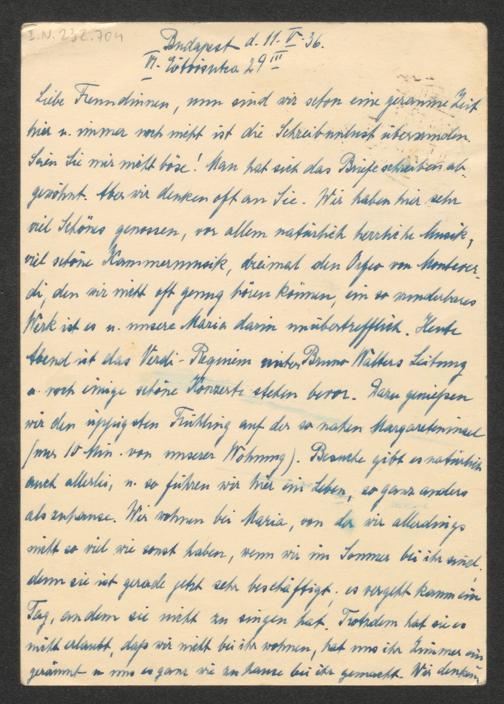 I.N. 232.704
Budapest d. 11. V. 36.
VI. Eötvösutca 29 III
Liebe Freundinnen, nun sind wir schon eine geraume Zeit
hier u. immer noch nicht ist die Schreibunlust überwunden.
Seien Sie mir nicht böse! Man hat sich das Briefeschreiben ab-
gewöhnt. Aber wir denken oft an Sie. Wir haben hier sehr
viel Schönes genossen, vor allem natürlich herrliche Musik,
viel schöne Kammermusik, dreimal den Orfeo von Montever-
di, den wir nicht oft genug hören können, ein so wunderbares
Werk ist es u. unsere Maria darin unübertrefflich. Heute
Abend ist das Verdi-Requiem unter Bruno Walters Leitung
u. noch einige schöne Konzerte stehen bevor. Dazu genießen
wir den üppigsten Frühling auf der so nahen Margareteninsel
(nur 10 Min. von unserer Wohnung). Besuche gibt es natürlich
auch allerlei, u. so führen wir hier ein Leben, so ganz anders
als zuhause. Wir wohnen bei Maria, von der wir allerdings
nicht so viel wie sonst haben, wenn wir im Sommer bei ihr sind,
denn sie ist gerade jetzt sehr beschäftigt; es vergeht kaum ein
Tag, an dem sie nicht zu singen hat. Trotzdem hat sie es
nicht erlaubt, daß wir nicht bei ihr wohnen, hat uns ihr Zimmer ein-
geräumt u. uns es ganz wie zu hause bei ihr gemacht. Wir denken,